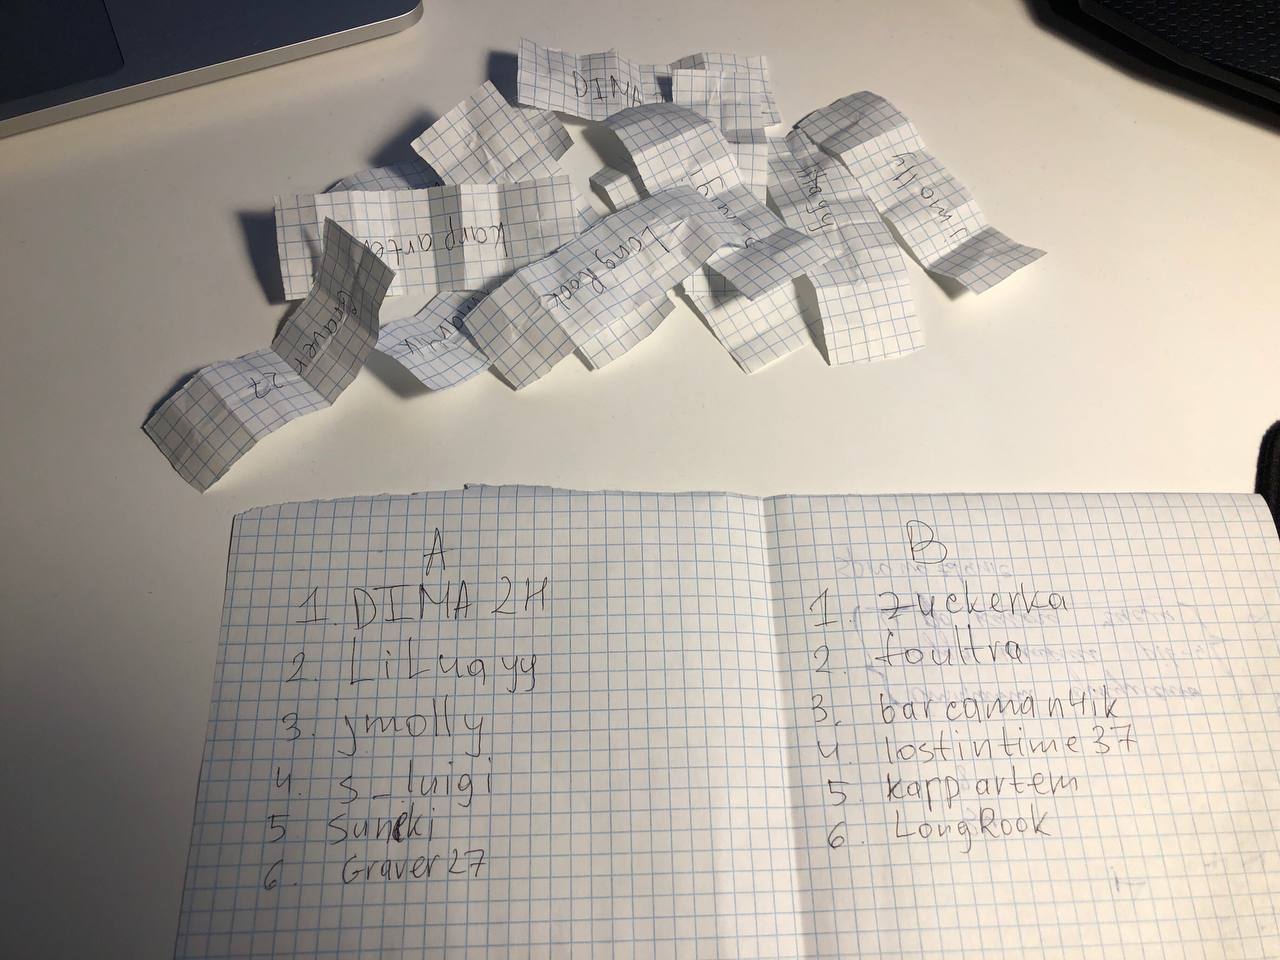 DIMA
karp arte
Long Rook
jmolly
Graver 27
A
1. DIMA 2H
2. LiLuayy
3. jmolly
4. s_luigi
5 Suneki
6. Graver27
B
1. zuckerka
2. foultra
3. barcaman4ik
4. lostintime37
5. karp artem
6. LongRook